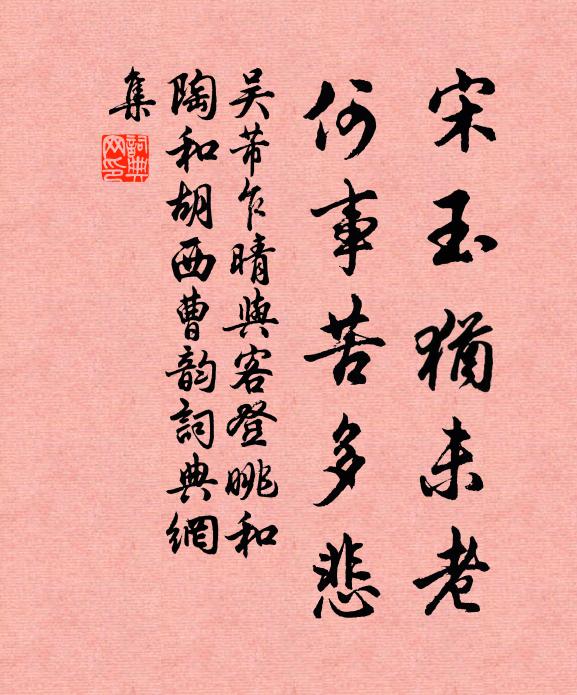 宋玉猶未老
何事苦多悲
吴芾乍晴與客登眺和
陶和胡西曹韵詞典網
集
詞典
网印